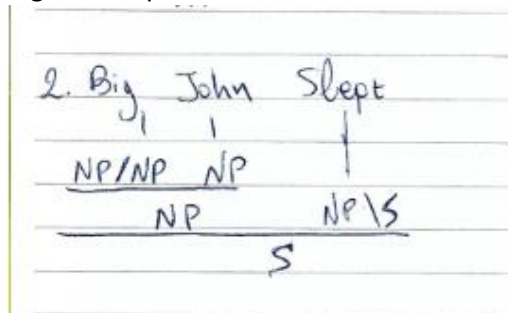 2. Big John Slept
NP/NP NP
NP NP\S
S